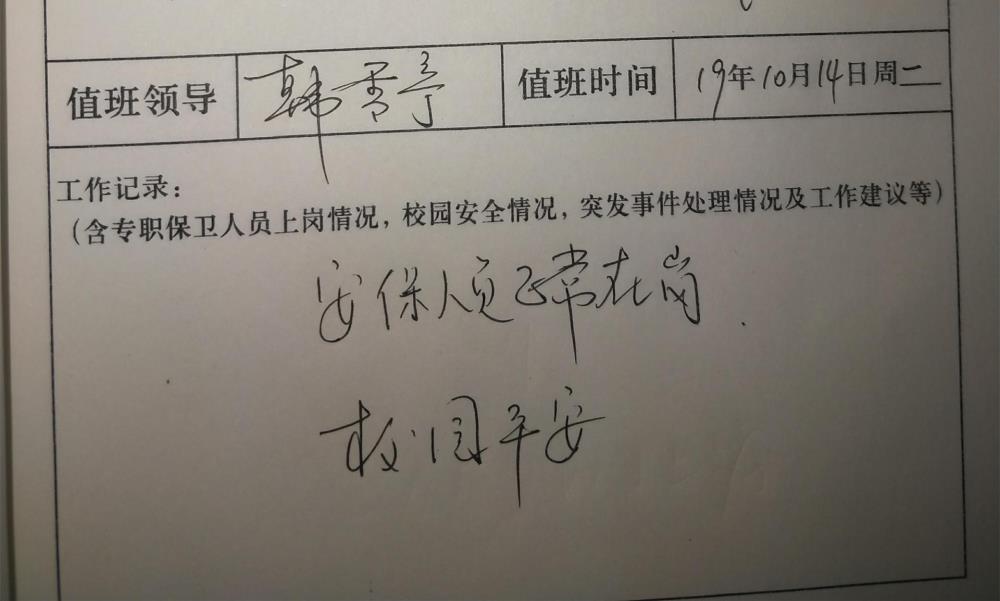 值班领导 韩秀亭 值班时间 19年10月14日周二
工作记录：
（含专职保卫人员上岗情况，校园安全情况，突发事件处理情况及工作建议等）
安保人员正常在岗.
校园平安